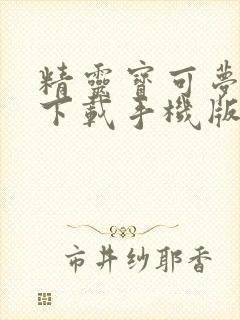 精靈寶可夢
下載手機版
市井紗耶香